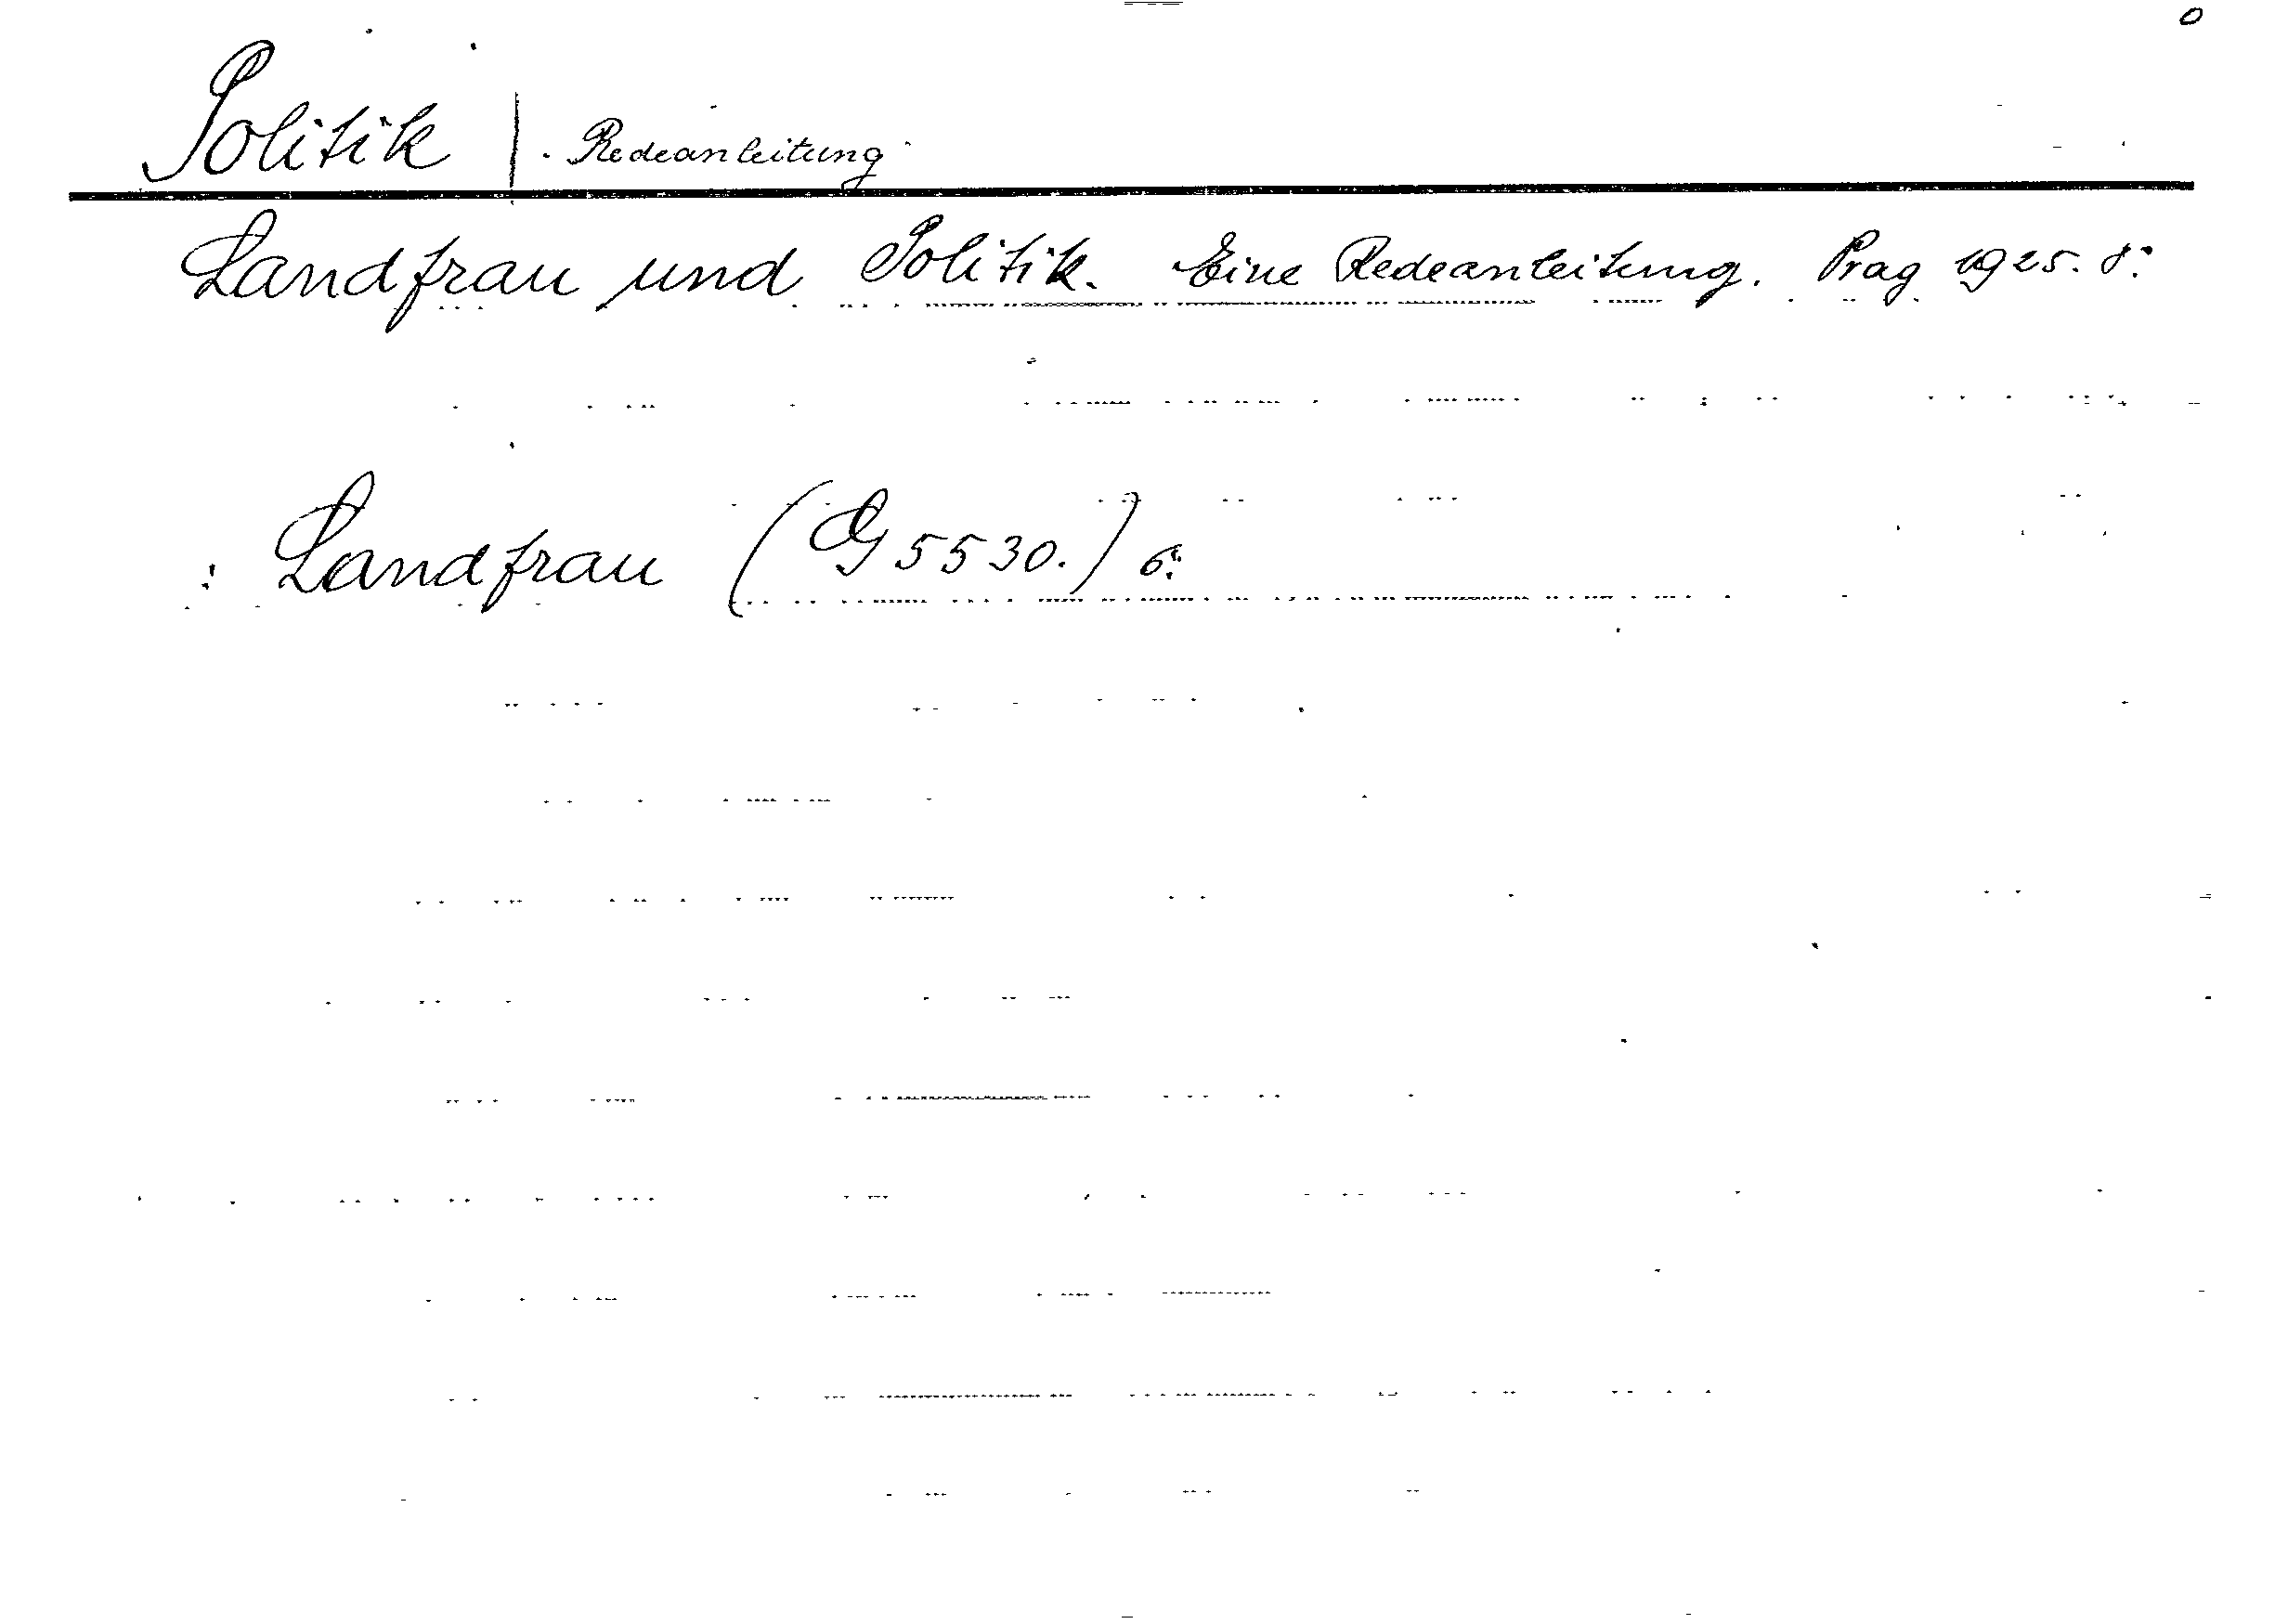 Politik | Redeanleitung
Landfrau und Politik. Eine Redeanleitung. Prag 1925. 8:
: Landfrau (G 5530.) 6: